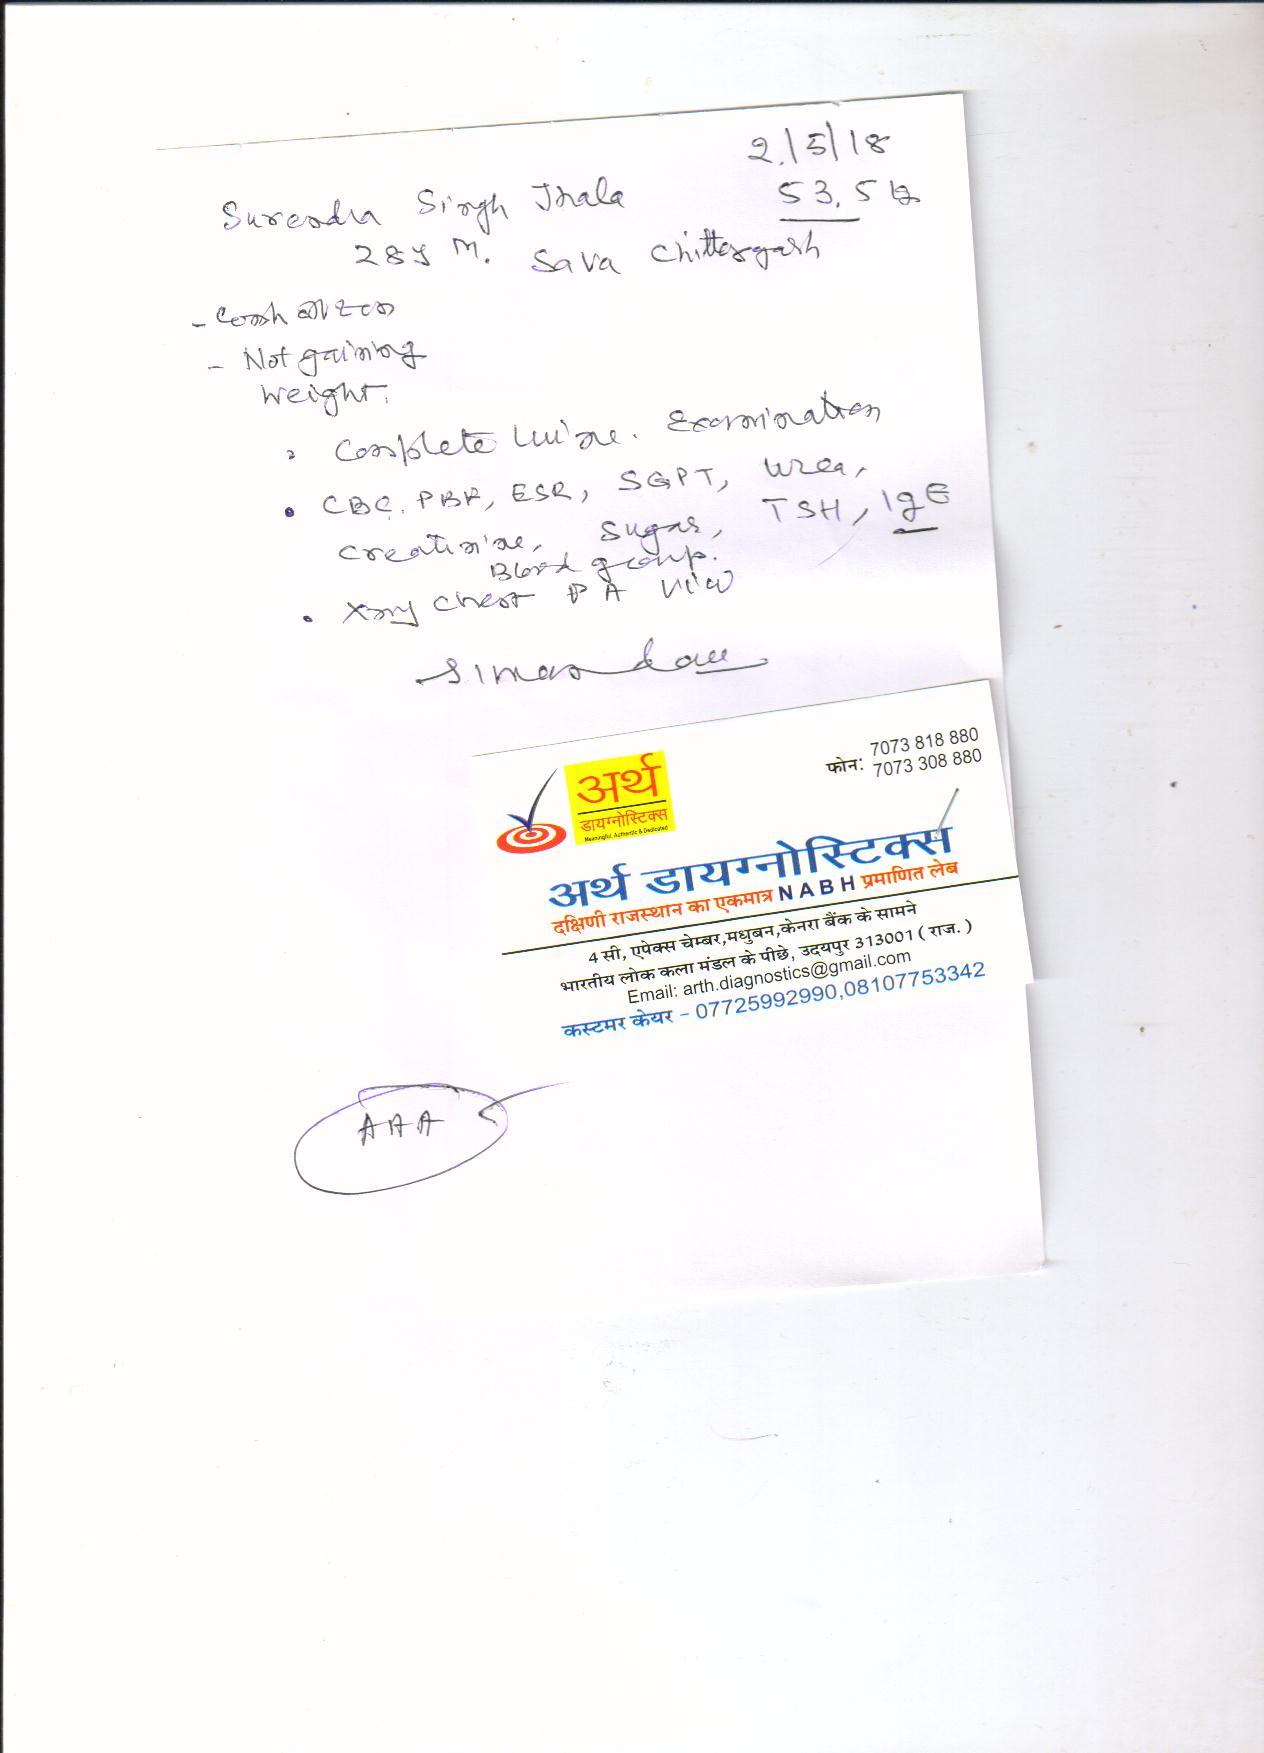 2/5/18
Surendra Singh Jhala
53.5 kg
28y M. Sava Chittorgarh
- Not gaining
weight.
Complete Urine. Examination
• CBC, PBF, ESR, SGPT, Urea,
Creatinine, Sugar, TSH, IgE
Blood group.
• Xray Chest PA View
अर्थ
डायग्नोस्टिक्स
Meaningful, Authentic & Dedicated
फोन: 7073 818 880
7073 308 880
अर्थ डायग्नोस्टिक्स
दक्षिणी राजस्थान का एकमात्र NABH प्रमाणित लेब
4 सी, एपेक्स चेम्बर,मधुबन,केनरा बैंक के सामने
भारतीय लोक कला मंडल के पीछे, उदयपुर 313001 ( राज. )
Email: arth.diagnostics@gmail.com
कस्टमर केयर - 07725992990,08107753342
AAA